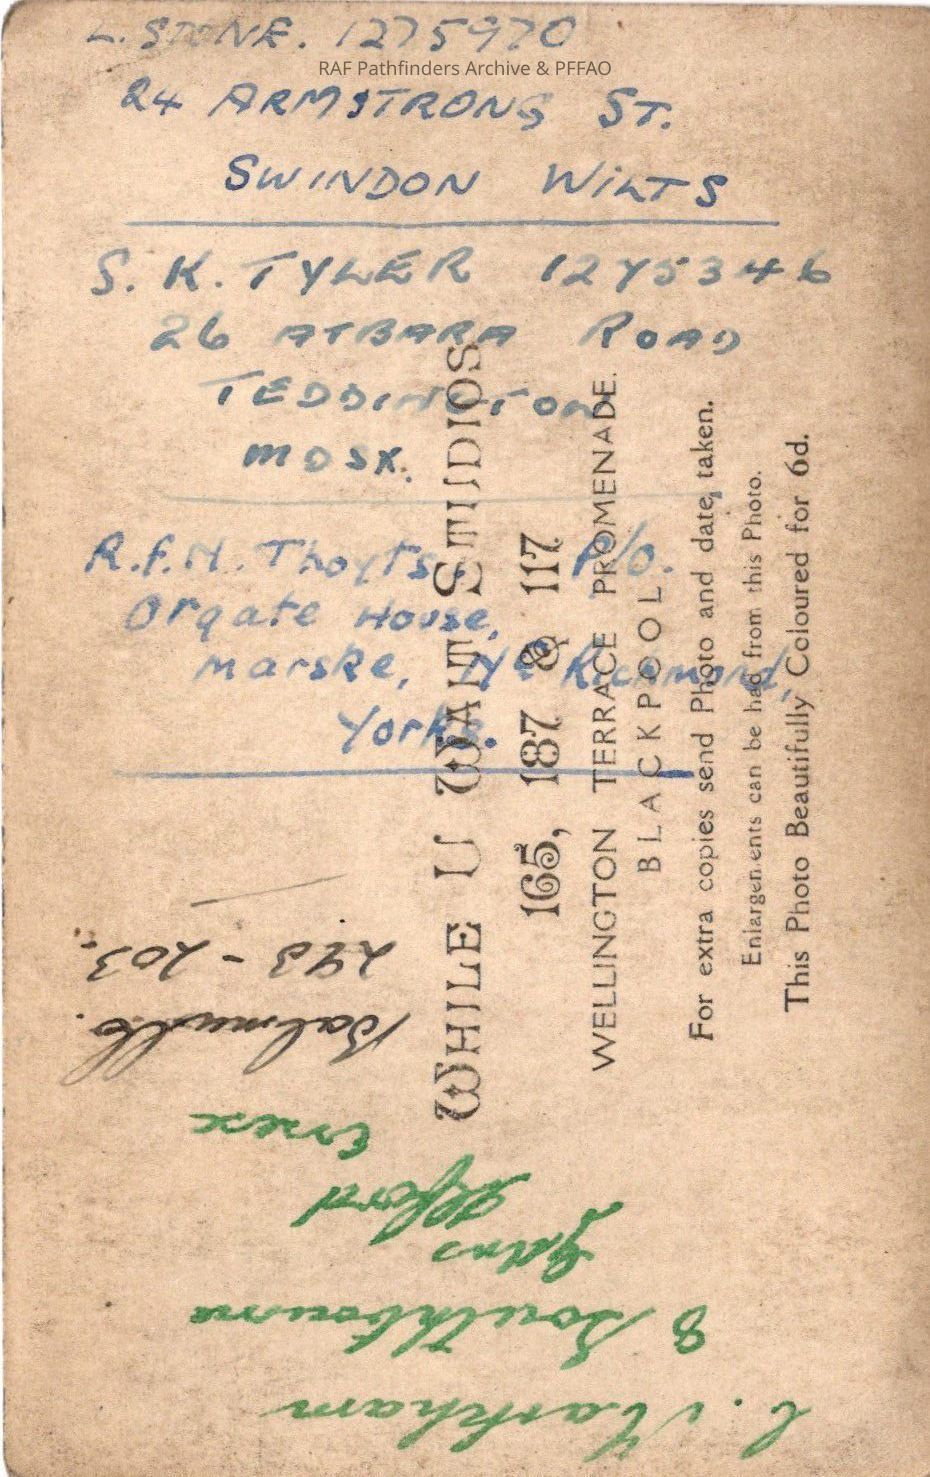 L. STONE. 1275970
RAF Pathfinders Archive & PFFAO
24 ARMSTRONG ST.
SWINDON WILTS
S. K. TYLER 1275346
26 ATBARA ROAD
TEDDINGTON
MDSX.
R.F.H. Thoyts, P/O.
Orgate House,
Marske, Nr Richmond,
Yorks.
WHILE U WAIT STUDIOS
165, 187 & 117
WELLINGTON TERRACE PROMENADE.
BLACKPOOL
For extra copies send Photo and date, taken.
Enlargements can be had from this Photo.
This Photo Beautifully Coloured for 6d.
C. Markham
8 Southbourne
Gdns
Ilford
Essex
243-203.